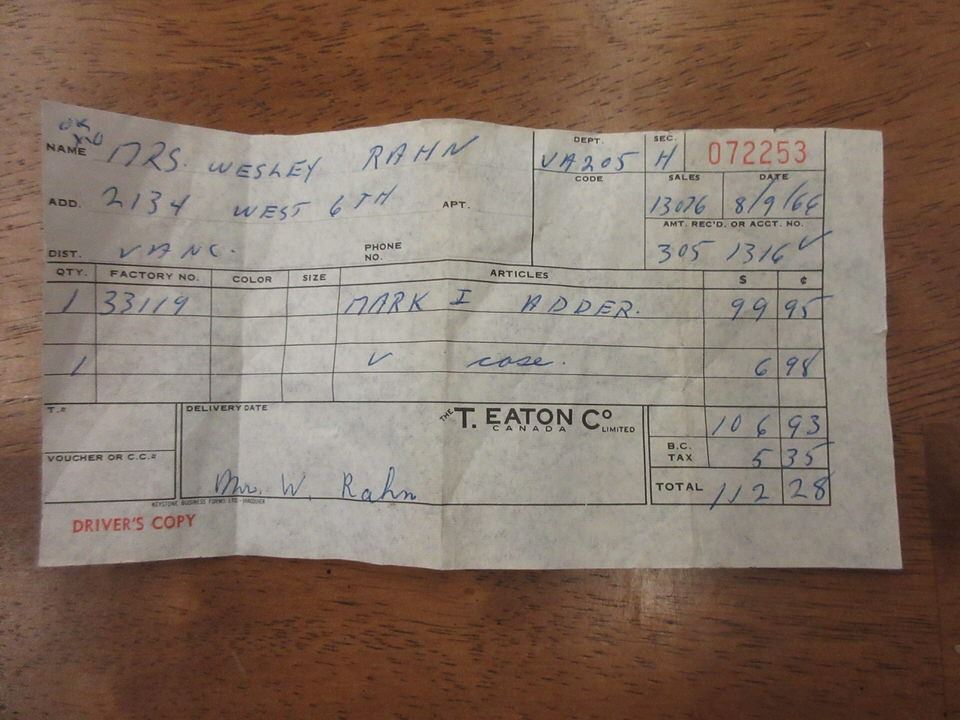 OK
NAME MRS. WESLEY RAHN
DEPT. VA205 SEC. H 072253
CODE SALES 13076 DATE 8/9/66
ADD. 2134 WEST 6TH APT.
AMT. REC'D. OR ACCT. NO. 305 1316 ✓
DIST. VANC. PHONE NO.
QTY. FACTORY NO. COLOR SIZE ARTICLES $ ¢
1 33119 MARK I ADDER. 99 95
1 ✓ case. 6 98
106 93
T.# DELIVERY DATE THE T. EATON Co CANADA LIMITED
B.C. TAX 5 35
VOUCHER OR C.C.#
TOTAL 112 28
Mr. W. Rahn
KEYSTONE BUSINESS FORMS LTD.
DRIVER'S COPY